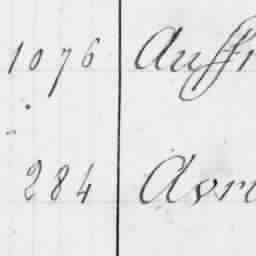 1076 Auffr
284 Avri